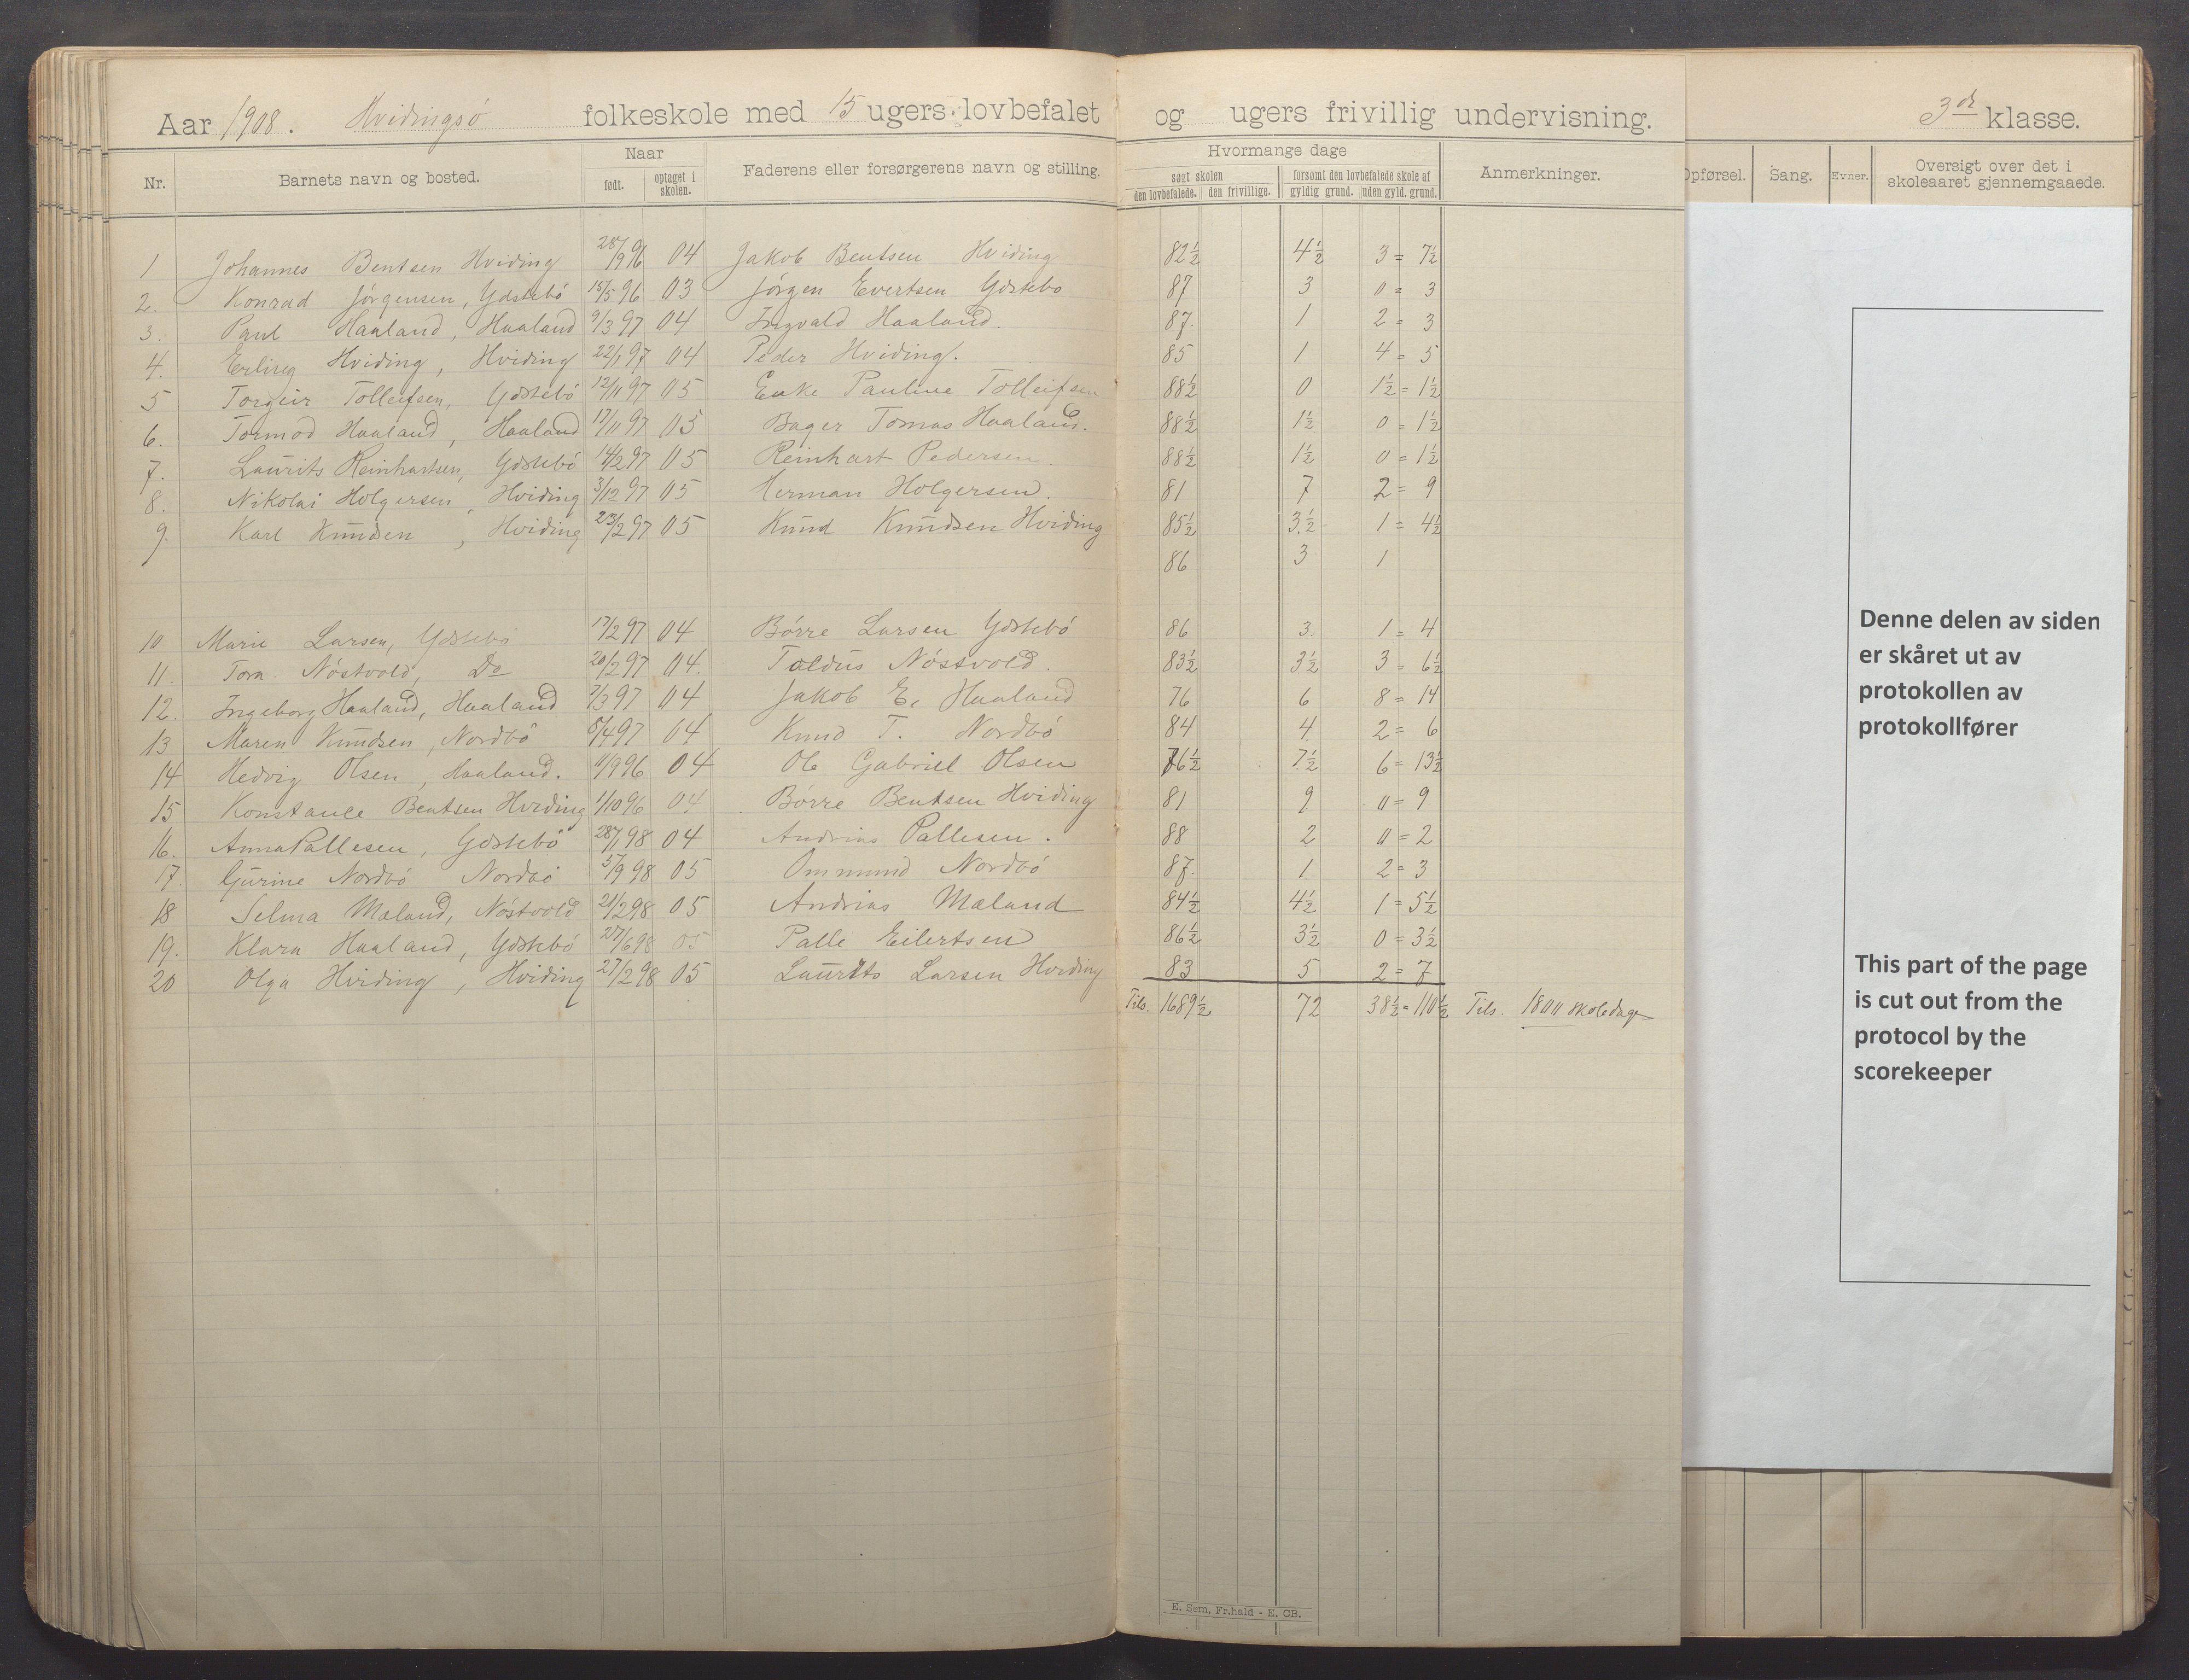 Aar 1908. Hvidingsö folkeskole med 15 ugers lovbefalet og ugers frivillig undervisning. 3de klasse.
Nr. Barnets navn og bosted. Naar født. optaget i skolen. Faderens eller forsørgerens navn og stilling. Hvormange dage søgt skolen den lovbefalede. den frivillige. forsømt den lovbefalede skole af gyldig grund. uden gyld. grund. Anmerkninger. Opførsel. Sang. Evner. Oversigt over det i skoleaaret gjennemgaaede.
1 Johannes Bentsen Hviding 28/9 96 04 Jakob Bentsen Hviding 82½ 4½ 3 = 7½
2. Konrad Jörgensen, Ydstebö 15/5 96 03 Jörgen Evertsen Ydstebo 87 3 0 = 3
3. Paul Haaland, Haaland 9/3 97 04 Ingvald Haaland. 87. 1 2 = 3
4. Erling Hviding, Hviding 22/1 97 04 Peder Hviding. 85 1 4 = 5
5 Torgeir Tolleifsen, Ydstebö 12/11 97 05 Enke Pauline Tolleifsen 88½ 0 1½ = 1½
6. Tormod Haaland, Haaland 17/11 97 05 Bager Tomas Haaland. 88½ 1½ 0 = 1½
7. Laurits Reinhartsen, Ydstebö 14/2 97 05 Reinhart Pedersen. 88½ 1½ 0 = 1½
8. Nikolai Holgersen, Hviding 3/12 97 05 Herman Holgersen. 81 7 2 = 9
9. Karl Knudsen, Hviding 23/2 97 05 Knud Knudsen Hviding 85½ 3½ 1 = 4½
86 3 1
10 Marie Larsen, Ydstebö 17/2 97 04 Börre Larsen Ydstebö 86 3. 1 = 4
11. Tora Nöstvold, Do 20/2 97 04. Taldus Nöstvold. 83½ 3½ 3 = 6½
12. Ingeborg Haaland, Haaland 7/3 97 04 Jakob E. Haaland 76 6 8 = 14
13 Maren Knudsen, Nordbö 5/4 97 04 Knud T. Nordbö 84 4 2 = 6
14 Hedvig Olsen, Haaland. 11/9 96 04 Ole Gabriel Olsen 76½ 7½ 6 = 13½
15 Konstance Bentsen Hviding 1/10 96 04 Börre Bentsen Hviding 81 9 0 = 9
16. Anna Pallesen, Ydstebö 28/1 98 04 Andrias Pallesen. 88 2 0 = 2
17. Gurine Nordbö Nordbö 5/9 98 05 Ommund Nordbö 87. 1 2 = 3
18 Selma Mæland, Nöstvold 21/2 98 05 Andrias Mæland 84½ 4½ 1 = 5½
19. Klara Haaland, Ydstebö 27/6 98 05 Palle Eilertsen 86½ 3½ 0 = 3½
20 Olga Hviding, Hviding 27/2 98 05 Laurits Larsen Hviding 83 5 2 = 7
Tils. 1689½ 72 38½ = 110½ Tils. 1800 skoledage
E. Sem, Fr.hald - E. CB.
Denne delen av siden
er skåret ut av
protokollen av
protokollfører
This part of the page
is cut out from the
protocol by the
scorekeeper